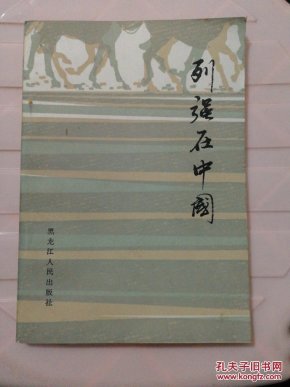 列强在中國
黑龙江人民出版社
孔夫子旧书网
KFZ.CN